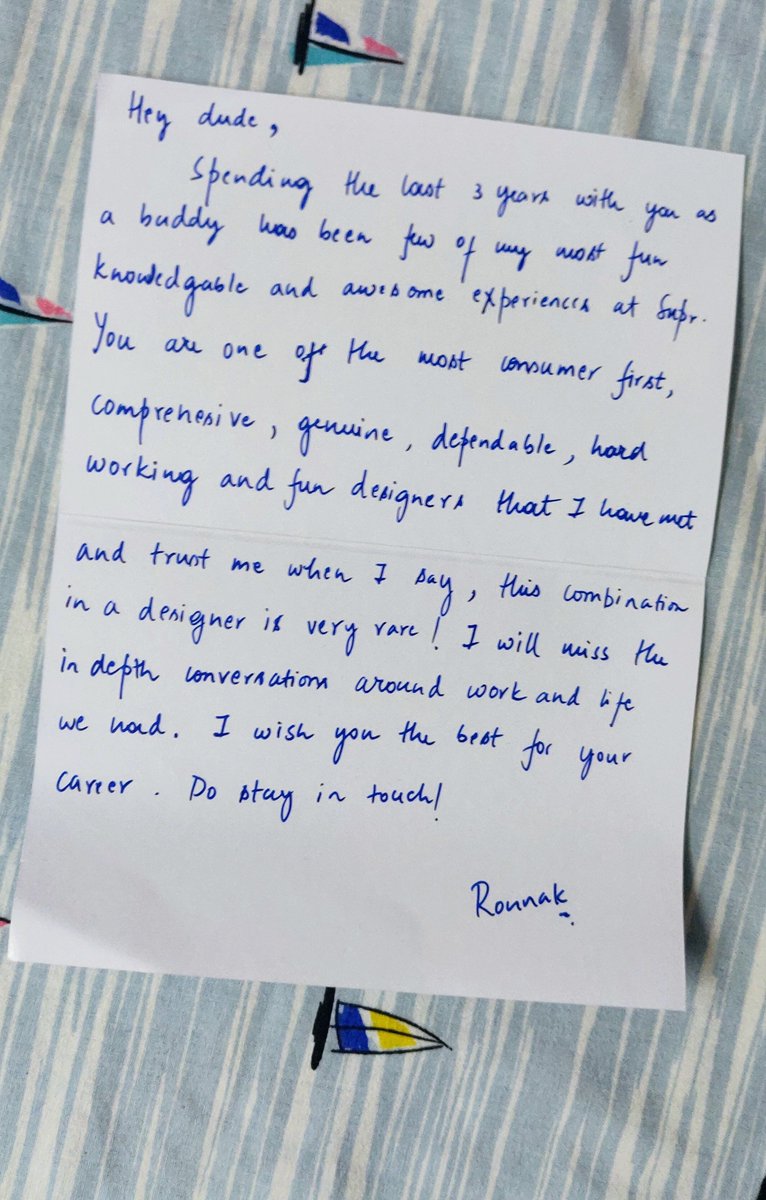 Hey dude,
Spending the last 3 years with you as
a buddy has been few of my most fun
knowledgable and awesome experiences at Supr.
You are one off the most consumer first,
comprehesive, genuine, dependable, hard
working and fun designers that I have met
and trust me when I say, this combination
in a designer is very rare! I will miss the
in depth conversations around work and life
we had. I wish you the best for your
career. Do stay in touch!
Ronnak